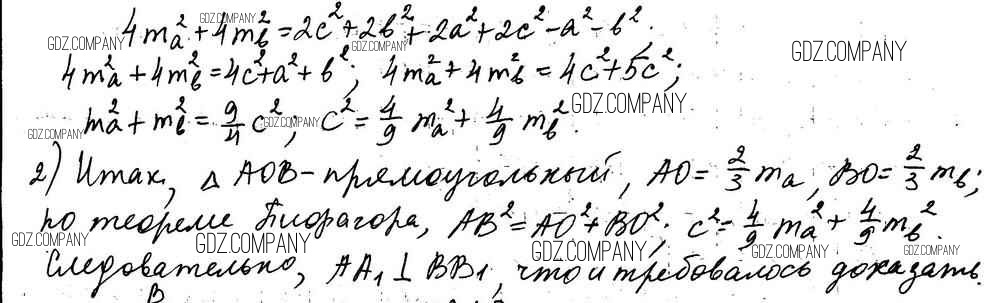 4m_a² + 4m_b² = 2c² + 2b² + 2a² + 2c² - a² - b².
4m_a² + 4m_b² = 4c² + a² + b²; 4m_a² + 4m_b² = 4c² + 5c²;
m_a² + m_b² = 9/4 c²; c² = 4/9 m_a² + 4/9 m_b².
2) Итак, △ AOB - прямоугольный, AO = 2/3 m_a, BO = 2/3 m_b;
по теореме Пифагора, AB² = AO² + BO²; c² = 4/9 m_a² + 4/9 m_b².
Следовательно, AA₁ ⊥ BB₁, что и требовалось доказать.
B
GDZ.COMPANY
GDZ.COMPANY
GDZ.COMPANY
GDZ.COMPANY
GDZ.COMPANY
GDZ.COMPANY
GDZ.COMPANY
GDZ.COMPANY
GDZ.COMPANY
GDZ.COMPANY
GDZ.COMPANY
GDZ.COMPANY